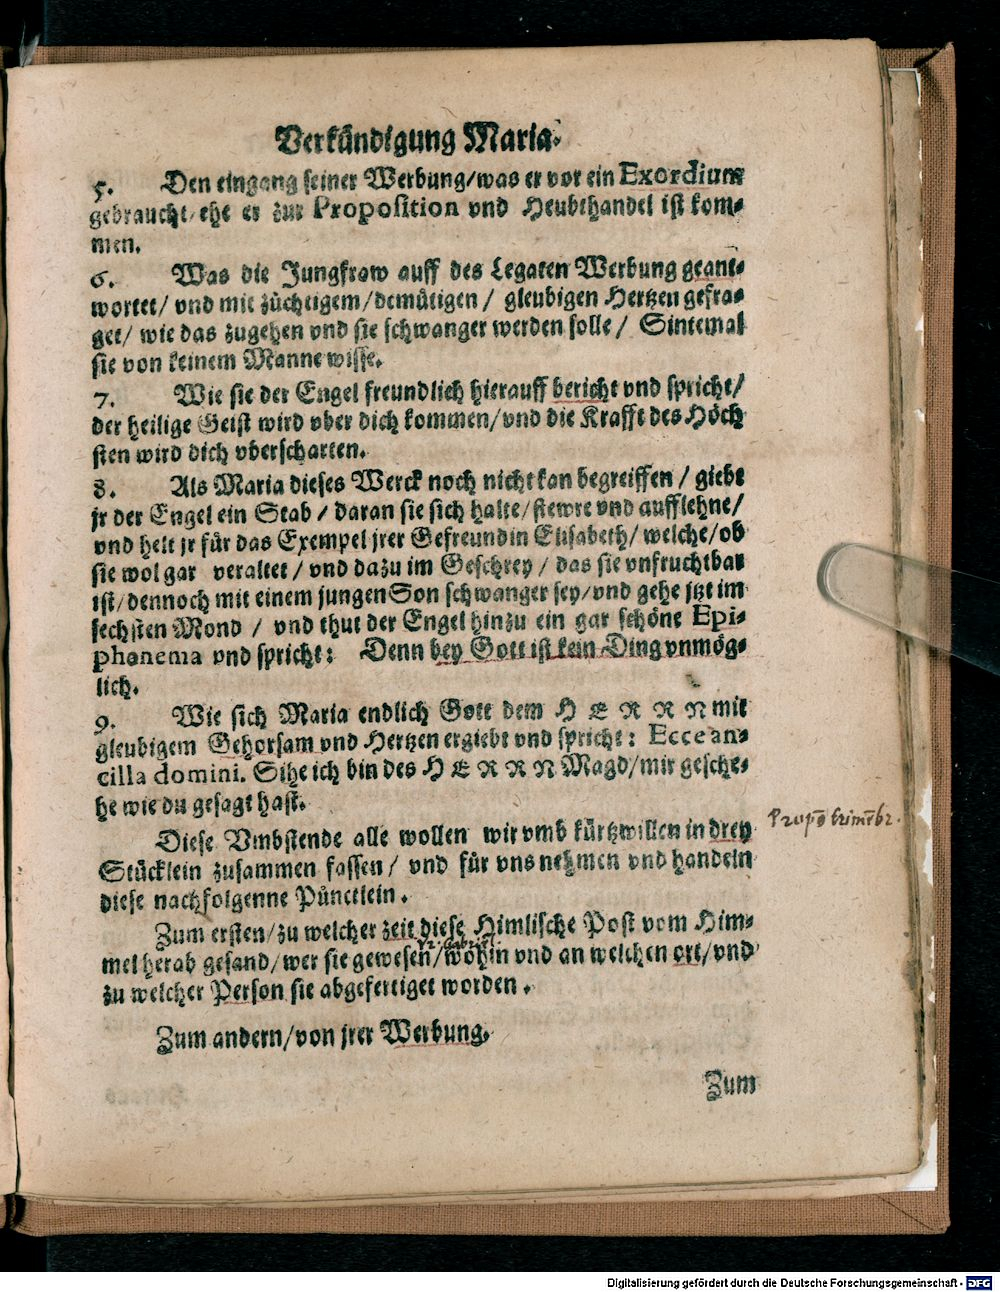 Verkündigung Maria.
5. Den eingang seiner Werbung/was er vor ein Exordium
gebraucht/ehe er zur Proposition vnd Heubthandel ist kom-
men.
6. Was die Jungfraw auff des Legaten Werbung geant-
wortet/ vnd mit züchtigem/demütigen / gleubigen Hertzen gefra-
get/ wie das zugehen vnd sie schwanger werden solle / Sintemal
sie von keinem Manne wisse.
7. Wie sie der Engel freundlich hierauff bericht vnd spricht/
der heilige Geist wird vber dich kommen/vnd die Krafft des Höch
sten wird dich vberschatten.
8. Als Maria dieses Werck noch nicht kan begreiffen / giebt
jr der Engel ein Stab / daran sie sich halte/stewre vnd aufflehne/
vnd helt jr für das Exempel jrer Gefreundin Elisabeth/ welche/ob
sie wol gar veraltet / vnd dazu im Geschrey / das sie vnfruchtbar
ist/dennoch mit einem jungen Son schwanger sey/vnd gehe jtzt im
sechsten Mond / vnd thut der Engel hinzu ein gar schöne Epi-
phonema vnd spricht: Denn bey Gott ist kein Ding vnmög-
lich.
9. Wie sich Maria endlich Gott dem HERRN mit
gleubigem Gehorsam vnd Hertzen ergiebt vnd spricht: Ecce an-
cilla domini. Sihe ich bin des HERRN Magd/mir gesche-
he wie du gesagt hast.
Diese Vmbstende alle wollen wir vmb kürtzwillen in drey
Stücklein zusammen fassen/ vnd für vns nehmen vnd handeln
diese nachfolgenne Pünctlein.
Zum ersten/zu welcher zeit diese Himlische Post vom Him-
mel herab gesand/wer sie gewesen/wohin vnd an welchen ort/vnd
zu welcher Person sie abgefertiget worden.
Zum andern/von jrer Werbung.
Zum
Digitalisierung gefördert durch die Deutsche Forschungsgemeinschaft - DFG